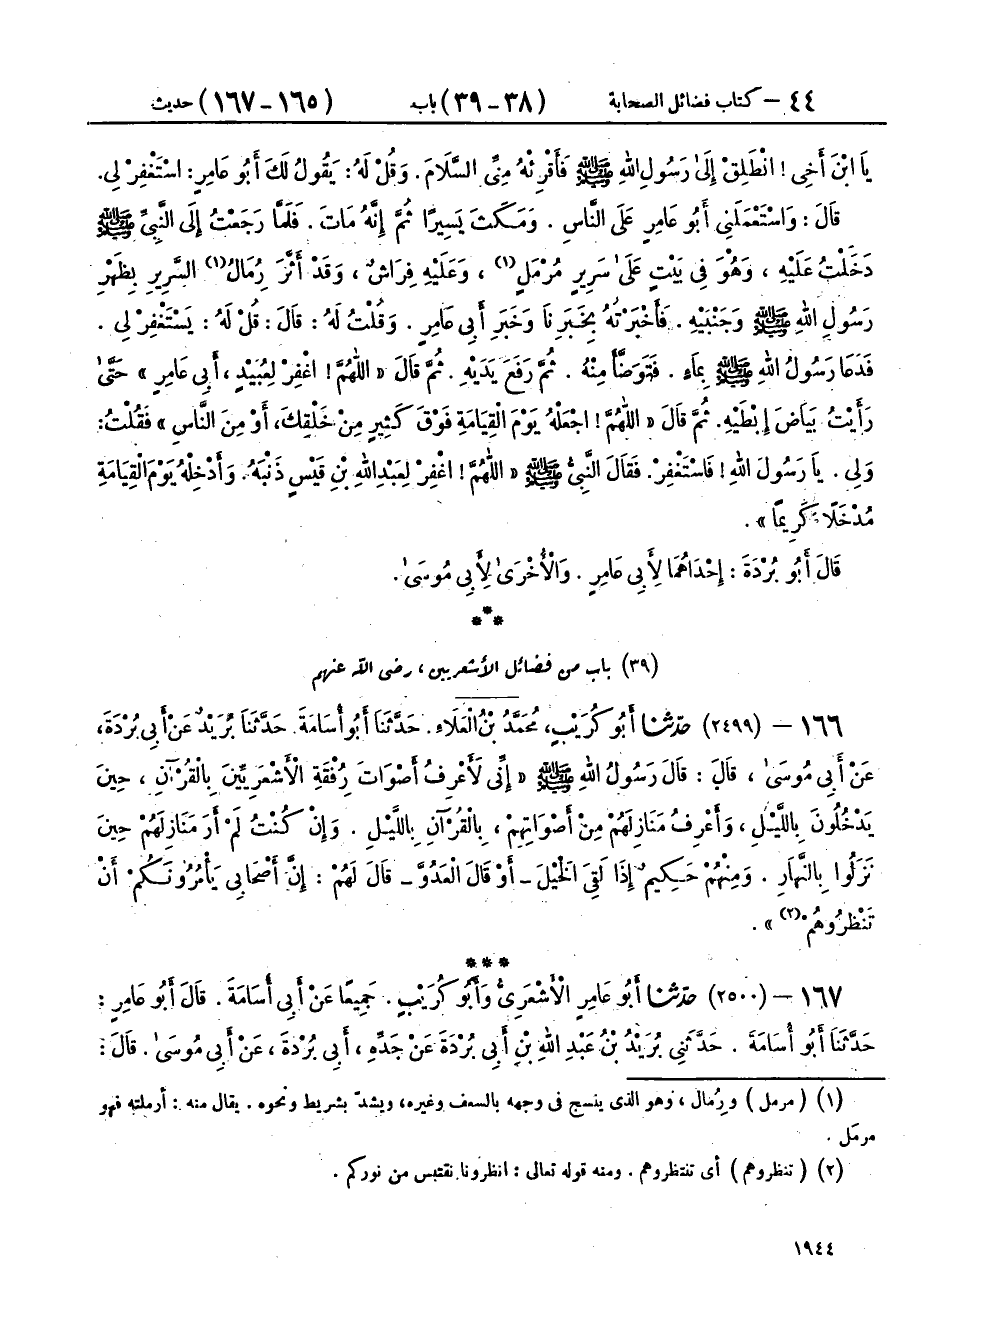 ٤٤ – كتاب فضائل الصحابة (٣٨ – ٣٩) باب (١٦٥ – ١٦٧) حديث
يَا ابْنَ أَخِى ! انْطَلِقْ إِلَىٰ رَسُولِ اللهِ ﷺ فَأَقْرِئْهُ مِنِّى السَّلَامَ . وَقُلْ لَهُ : يَقُولُ لَكَ أَبُو عَامِرٍ : اسْتَغْفِرْ لِى .
قَالَ : وَاسْتَعْمَلَنِى أَبُو عَامِرٍ عَلَى النَّاسِ . وَمَكَثَ يَسِيرًا ثُمَّ إِنَّهُ مَاتَ . فَلَمَّا رَجَعْتُ إِلَى النَّبِىِّ ﷺ
دَخَلْتُ عَلَيْهِ ، وَهُوَ فِى بَيْتٍ عَلَىٰ سَرِيرٍ مُرْمَلٍ (١) ، وَعَلَيْهِ فِرَاشٌ ، وَقَدْ أَثَّرَ رِمَالُ (١) السَّرِيرِ بِظَهْرِ
رَسُولِ اللهِ ﷺ وَجَنْبَيْهِ . فَأَخْبَرْتُهُ بِخَبَرِنَا وَخَبَرِ أَبِى عَامِرٍ . وَقُلْتُ لَهُ : قَالَ : قُلْ لَهُ : يَسْتَغْفِرْ لِى .
فَدَعَا رَسُولُ اللهِ ﷺ بِمَاءٍ . فَتَوَضَّأَ مِنْهُ . ثُمَّ رَفَعَ يَدَيْهِ . ثُمَّ قَالَ « اللّٰهُمَّ ! اغْفِرْ لِعُبَيْدٍ ، أَبِى عَامِرٍ » حَتَّىٰ
رَأَيْتُ بَيَاضَ إِبْطَيْهِ . ثُمَّ قَالَ « اللّٰهُمَّ ! اجْعَلْهُ يَوْمَ الْقِيَامَةِ فَوْقَ كَثِيرٍ مِنْ خَلْقِكَ ، أَوْ مِنَ النَّاسِ » فَقُلْتُ :
وَلِى . يَا رَسُولَ اللهِ ! فَاسْتَغْفِرْ . فَقَالَ النَّبِىُّ ﷺ « اللّٰهُمَّ ! اغْفِرْ لِعَبْدِ اللهِ بْنِ قَيْسٍ ذَنْبَهُ . وَأَدْخِلْهُ يَوْمَ الْقِيَامَةِ
مُدْخَلًا كَرِيمًا » .
قَالَ أَبُو بُرْدَةَ : إِحْدَاهُمَا لِأَبِى عَامِرٍ . وَالْأُخْرَىٰ لِأَبِى مُوسَىٰ .
***
(٣٩) باب من فضائل الأشعريين ، رضى الله عنهم
١٦٦ – (٢٤٩٩) حدّثنا أَبُو كُرَيْبٍ ، مُحَمَّدُ بْنُ الْعَلَاءِ . حَدَّثَنَا أَبُو أُسَامَةَ . حَدَّثَنَا بُرَيْدٌ عَنْ أَبِى بُرْدَةَ ،
عَنْ أَبِى مُوسَىٰ ، قَالَ : قَالَ رَسُولُ اللهِ ﷺ « إِنِّى لَأَعْرِفُ أَصْوَاتَ رُفْقَةِ الْأَشْعَرِيِّينَ بِالْقُرْآنِ ، حِينَ
يَدْخُلُونَ بِاللَّيْلِ ، وَأَعْرِفُ مَنَازِلَهُمْ مِنْ أَصْوَاتِهِمْ ، بِالْقُرْآنِ بِاللَّيْلِ . وَإِنْ كُنْتُ لَمْ أَرَ مَنَازِلَهُمْ حِينَ
نَزَلُوا بِالنَّهَارِ . وَمِنْهُمْ حَكِيمٌ إِذَا لَقِىَ الْخَيْلَ – أَوْ قَالَ الْعَدُوَّ – قَالَ لَهُمْ : إِنَّ أَصْحَابِى يَأْمُرُونَكُمْ أَنْ
تَنْظُرُوهُمْ (٢) » .
***
١٦٧ – (٢٥٠٠) حدّثنا أَبُو عَامِرٍ الْأَشْعَرِىُّ وَأَبُو كُرَيْبٍ . جَمِيعًا عَنْ أَبِى أُسَامَةَ . قَالَ أَبُو عَامِرٍ :
حَدَّثَنَا أَبُو أُسَامَةَ . حَدَّثَنِى بُرَيْدُ بْنُ عَبْدِ اللهِ بْنِ أَبِى بُرْدَةَ عَنْ جَدِّهِ ، أَبِى بُرْدَةَ ، عَنْ أَبِى مُوسَىٰ . قَالَ :
(١) ( مرمل ) ورُمال ، وهو الذى ينسج فى وجهه بالسعف وغيره ، ويشدّ بشريط ونحوه . يقال منه : أرملته فهو
مرمَل .
(٢) ( تنظروهم ) أى تنتظروهم . ومنه قوله تعالى : انظرونا نقتبس من نوركم .
١٩٤٤